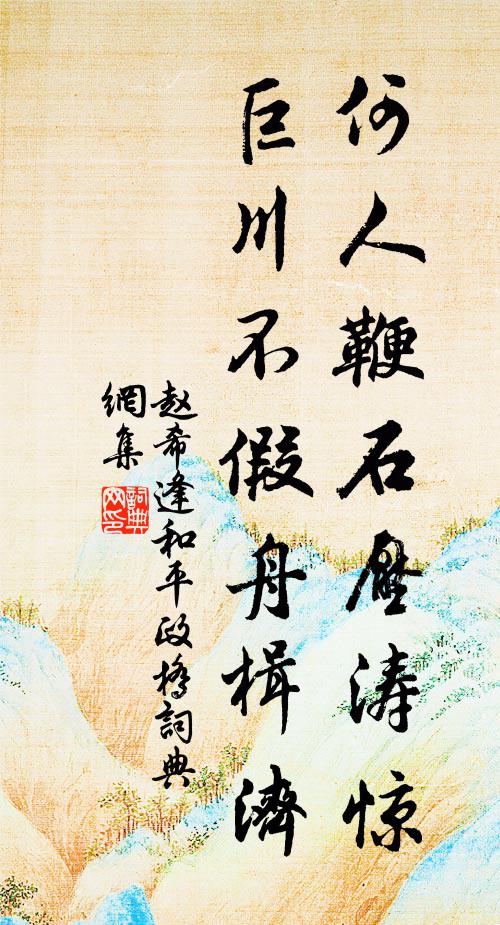 何人鞭石壓涛惊
巨川不假舟楫濟
赵希逢和平政橋詞典
網集
詞典
网印